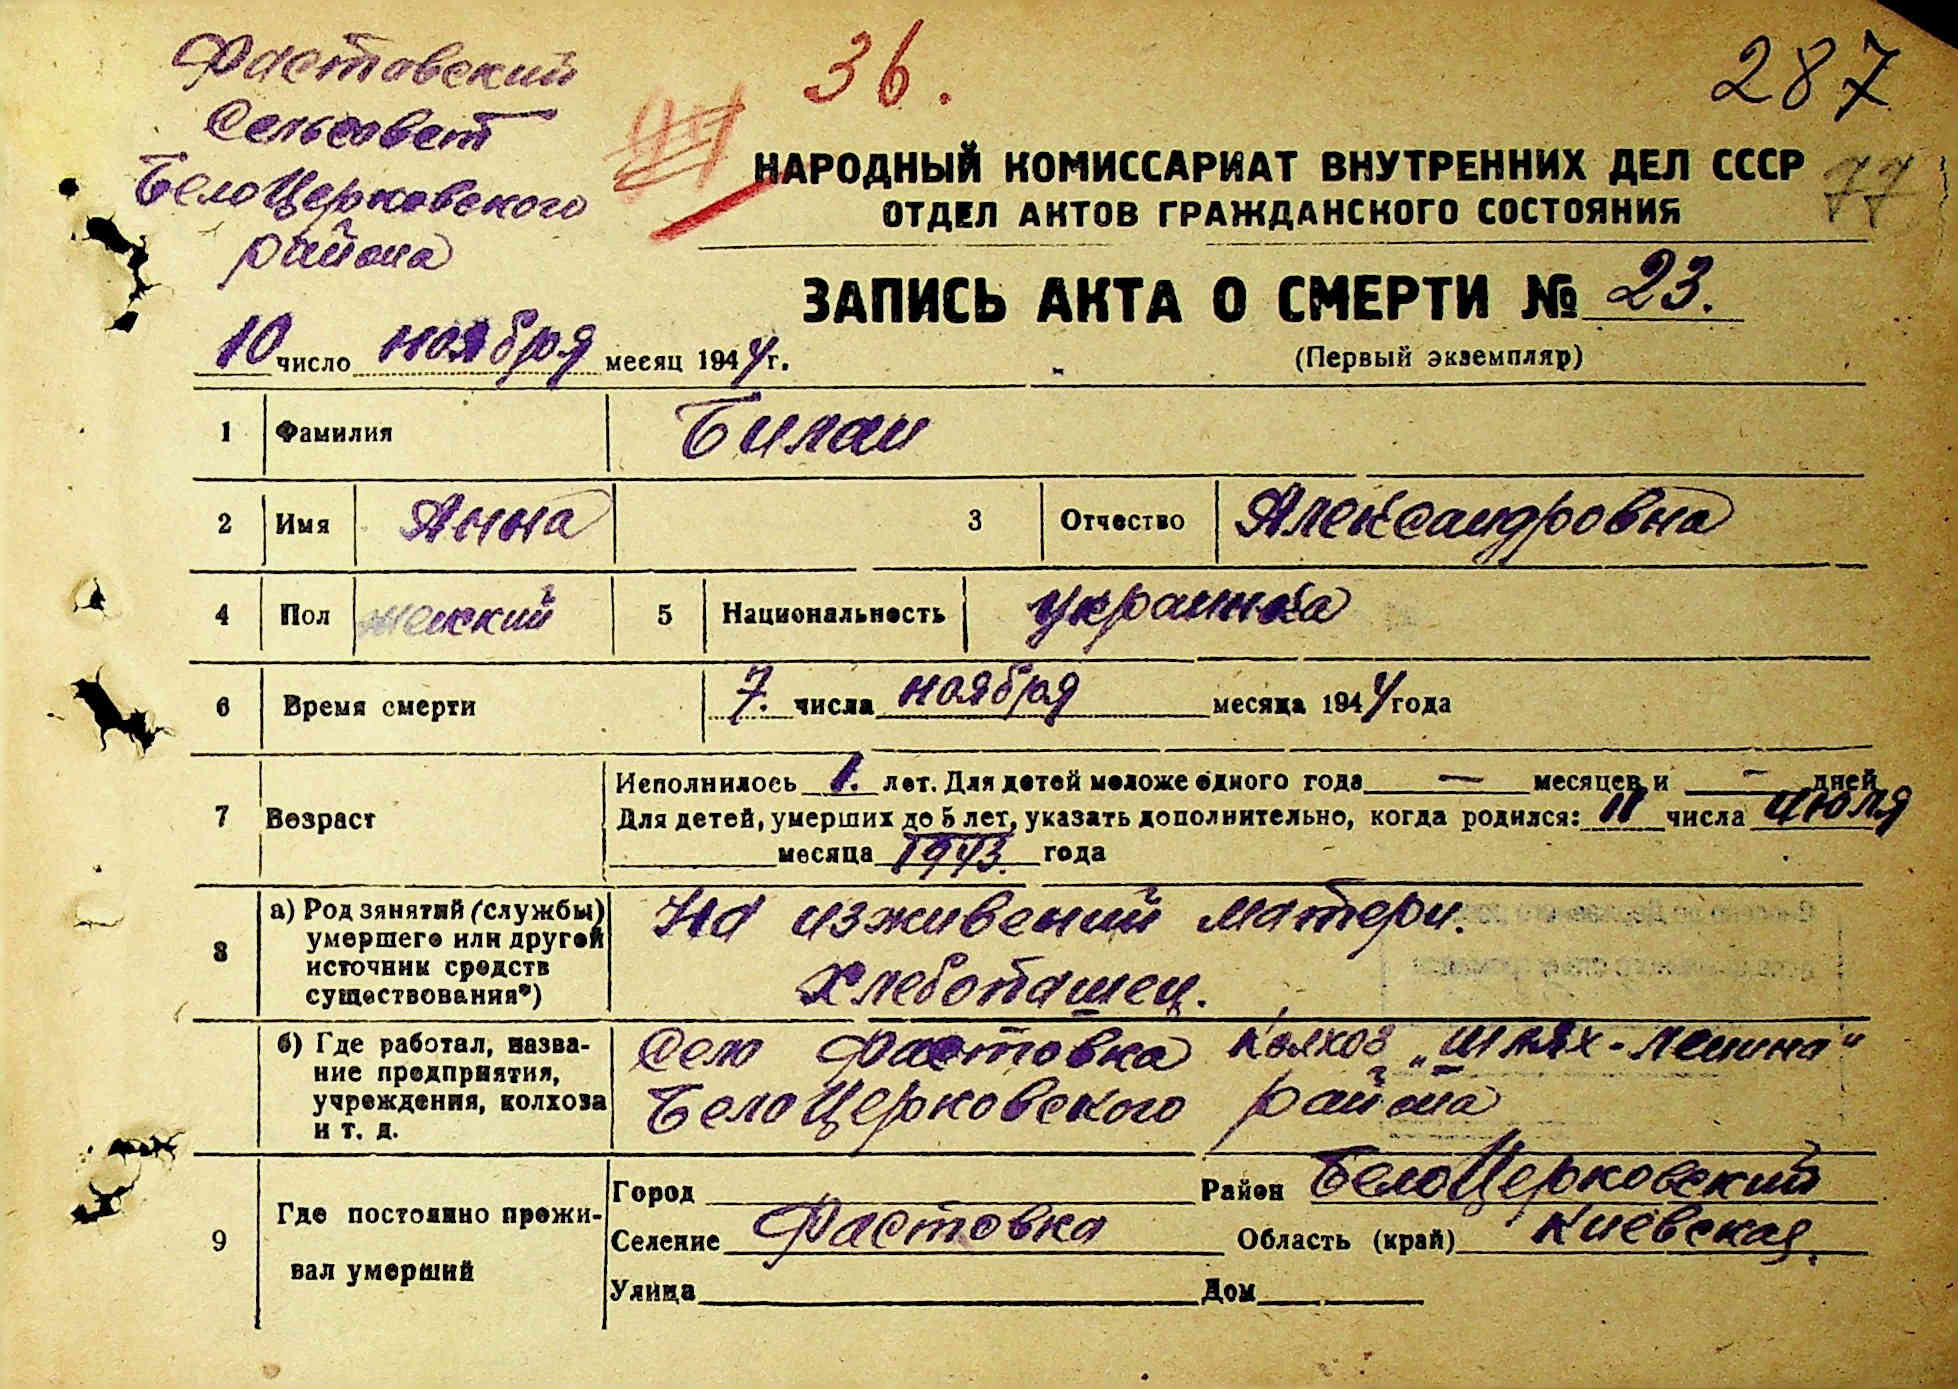 Фастовский
Сельсовет
БелоЦерковского
района
36.
44
287
77
НАРОДНЫЙ КОМИССАРИАТ ВНУТРЕННИХ ДЕЛ СССР
ОТДЕЛ АКТОВ ГРАЖДАНСКОГО СОСТОЯНИЯ
ЗАПИСЬ АКТА О СМЕРТИ № 23.
(Первый экземпляр)
10 число ноября месяц 1944 г.
1 Фамилия Билан
2 Имя Анна 3 Отчество Александровна
4 Пол женский 5 Национальность украинка
6 Время смерти 7. числа ноября месяца 1944 года
7 Возраст
Исполнилось 1. лет. Для детей моложе одного года — месяцев и – дней
Для детей, умерших до 5 лет, указать дополнительно, когда родился: 11 числа июля
месяца 1943. года
8 а) Род занятий (службы) умершего или другой источник средств существования*)
На изживений матери.
Хлебопашец.
б) Где работал, название предприятия, учреждения, колхоза и т. д.
Село Фастовка Колхоз „Шлях-Ленина"
БелоЦерковского района
9 Где постоянно проживал умерший
Город Район БелоЦерковский
Селение Фастовка Область (край) Киевская.
Улица Дом